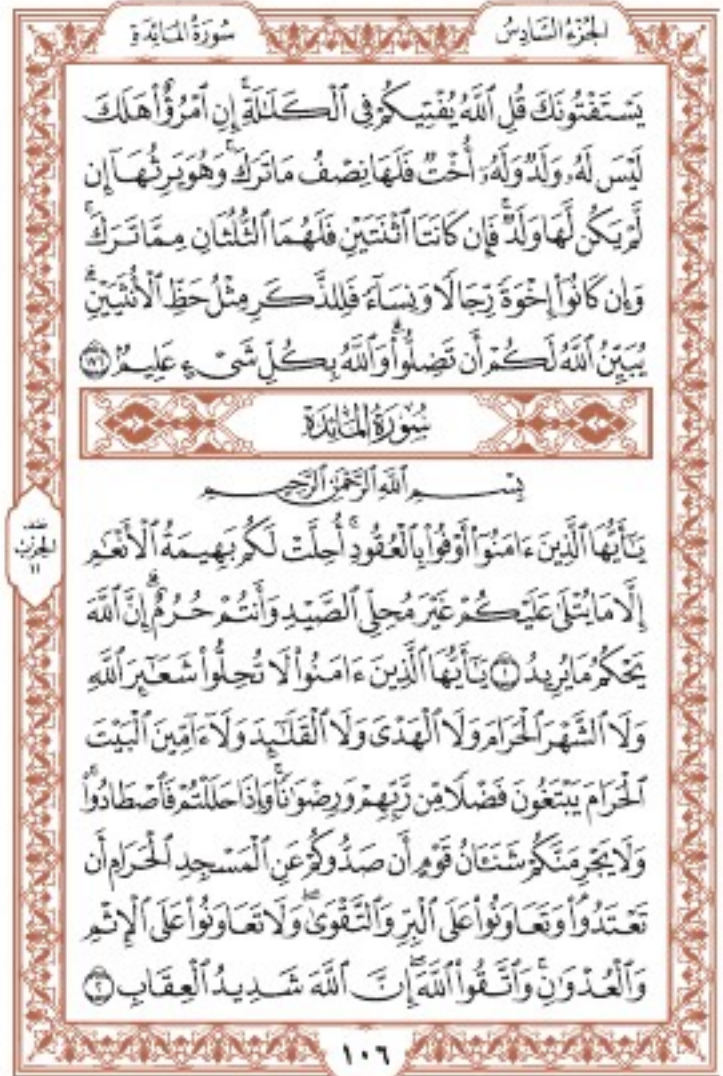 سُورَةُ المَائِدَةِ
الجُزْءُ السَّادِسُ
يَسْتَفْتُونَكَ قُلِ ٱللَّهُ يُفْتِيكُمْ فِى ٱلْكَلَٰلَةِۚ إِنِ ٱمْرُؤٌا۟ هَلَكَ
لَيْسَ لَهُۥ وَلَدٌ وَلَهُۥٓ أُخْتٌ فَلَهَا نِصْفُ مَا تَرَكَۚ وَهُوَ يَرِثُهَآ إِن
لَّمْ يَكُن لَّهَا وَلَدٌۚ فَإِن كَانَتَا ٱثْنَتَيْنِ فَلَهُمَا ٱلثُّلُثَانِ مِمَّا تَرَكَۚ
وَإِن كَانُوٓا۟ إِخْوَةً رِّجَالًا وَنِسَآءً فَلِلذَّكَرِ مِثْلُ حَظِّ ٱلْأُنثَيَيْنِۗ
يُبَيِّنُ ٱللَّهُ لَكُمْ أَن تَضِلُّوا۟ۗ وَٱللَّهُ بِكُلِّ شَىْءٍ عَلِيمٌۢ ١٧٦
سُورَةُ المَائِدَةِ
بِسْمِ ٱللَّهِ ٱلرَّحْمَٰنِ ٱلرَّحِيمِ
يَٰٓأَيُّهَا ٱلَّذِينَ ءَامَنُوٓا۟ أَوْفُوا۟ بِٱلْعُقُودِۚ أُحِلَّتْ لَكُم بَهِيمَةُ ٱلْأَنْعَٰمِ
إِلَّا مَا يُتْلَىٰ عَلَيْكُمْ غَيْرَ مُحِلِّى ٱلصَّيْدِ وَأَنتُمْ حُرُمٌۗ إِنَّ ٱللَّهَ
يَحْكُمُ مَا يُرِيدُ ١ يَٰٓأَيُّهَا ٱلَّذِينَ ءَامَنُوا۟ لَا تُحِلُّوا۟ شَعَٰٓئِرَ ٱللَّهِ
وَلَا ٱلشَّهْرَ ٱلْحَرَامَ وَلَا ٱلْهَدْىَ وَلَا ٱلْقَلَٰٓئِدَ وَلَآ ءَآمِّينَ ٱلْبَيْتَ
ٱلْحَرَامَ يَبْتَغُونَ فَضْلًا مِّن رَّبِّهِمْ وَرِضْوَٰنًاۚ وَإِذَا حَلَلْتُمْ فَٱصْطَادُوا۟ۚ
وَلَا يَجْرِمَنَّكُمْ شَنَـَٔانُ قَوْمٍ أَن صَدُّوكُمْ عَنِ ٱلْمَسْجِدِ ٱلْحَرَامِ أَن
تَعْتَدُوا۟ۘ وَتَعَاوَنُوا۟ عَلَى ٱلْبِرِّ وَٱلتَّقْوَىٰۖ وَلَا تَعَاوَنُوا۟ عَلَى ٱلْإِثْمِ
وَٱلْعُدْوَٰنِۚ وَٱتَّقُوا۟ ٱللَّهَۖ إِنَّ ٱللَّهَ شَدِيدُ ٱلْعِقَابِ ٢
نصف
الحزب
١١
١٠٦